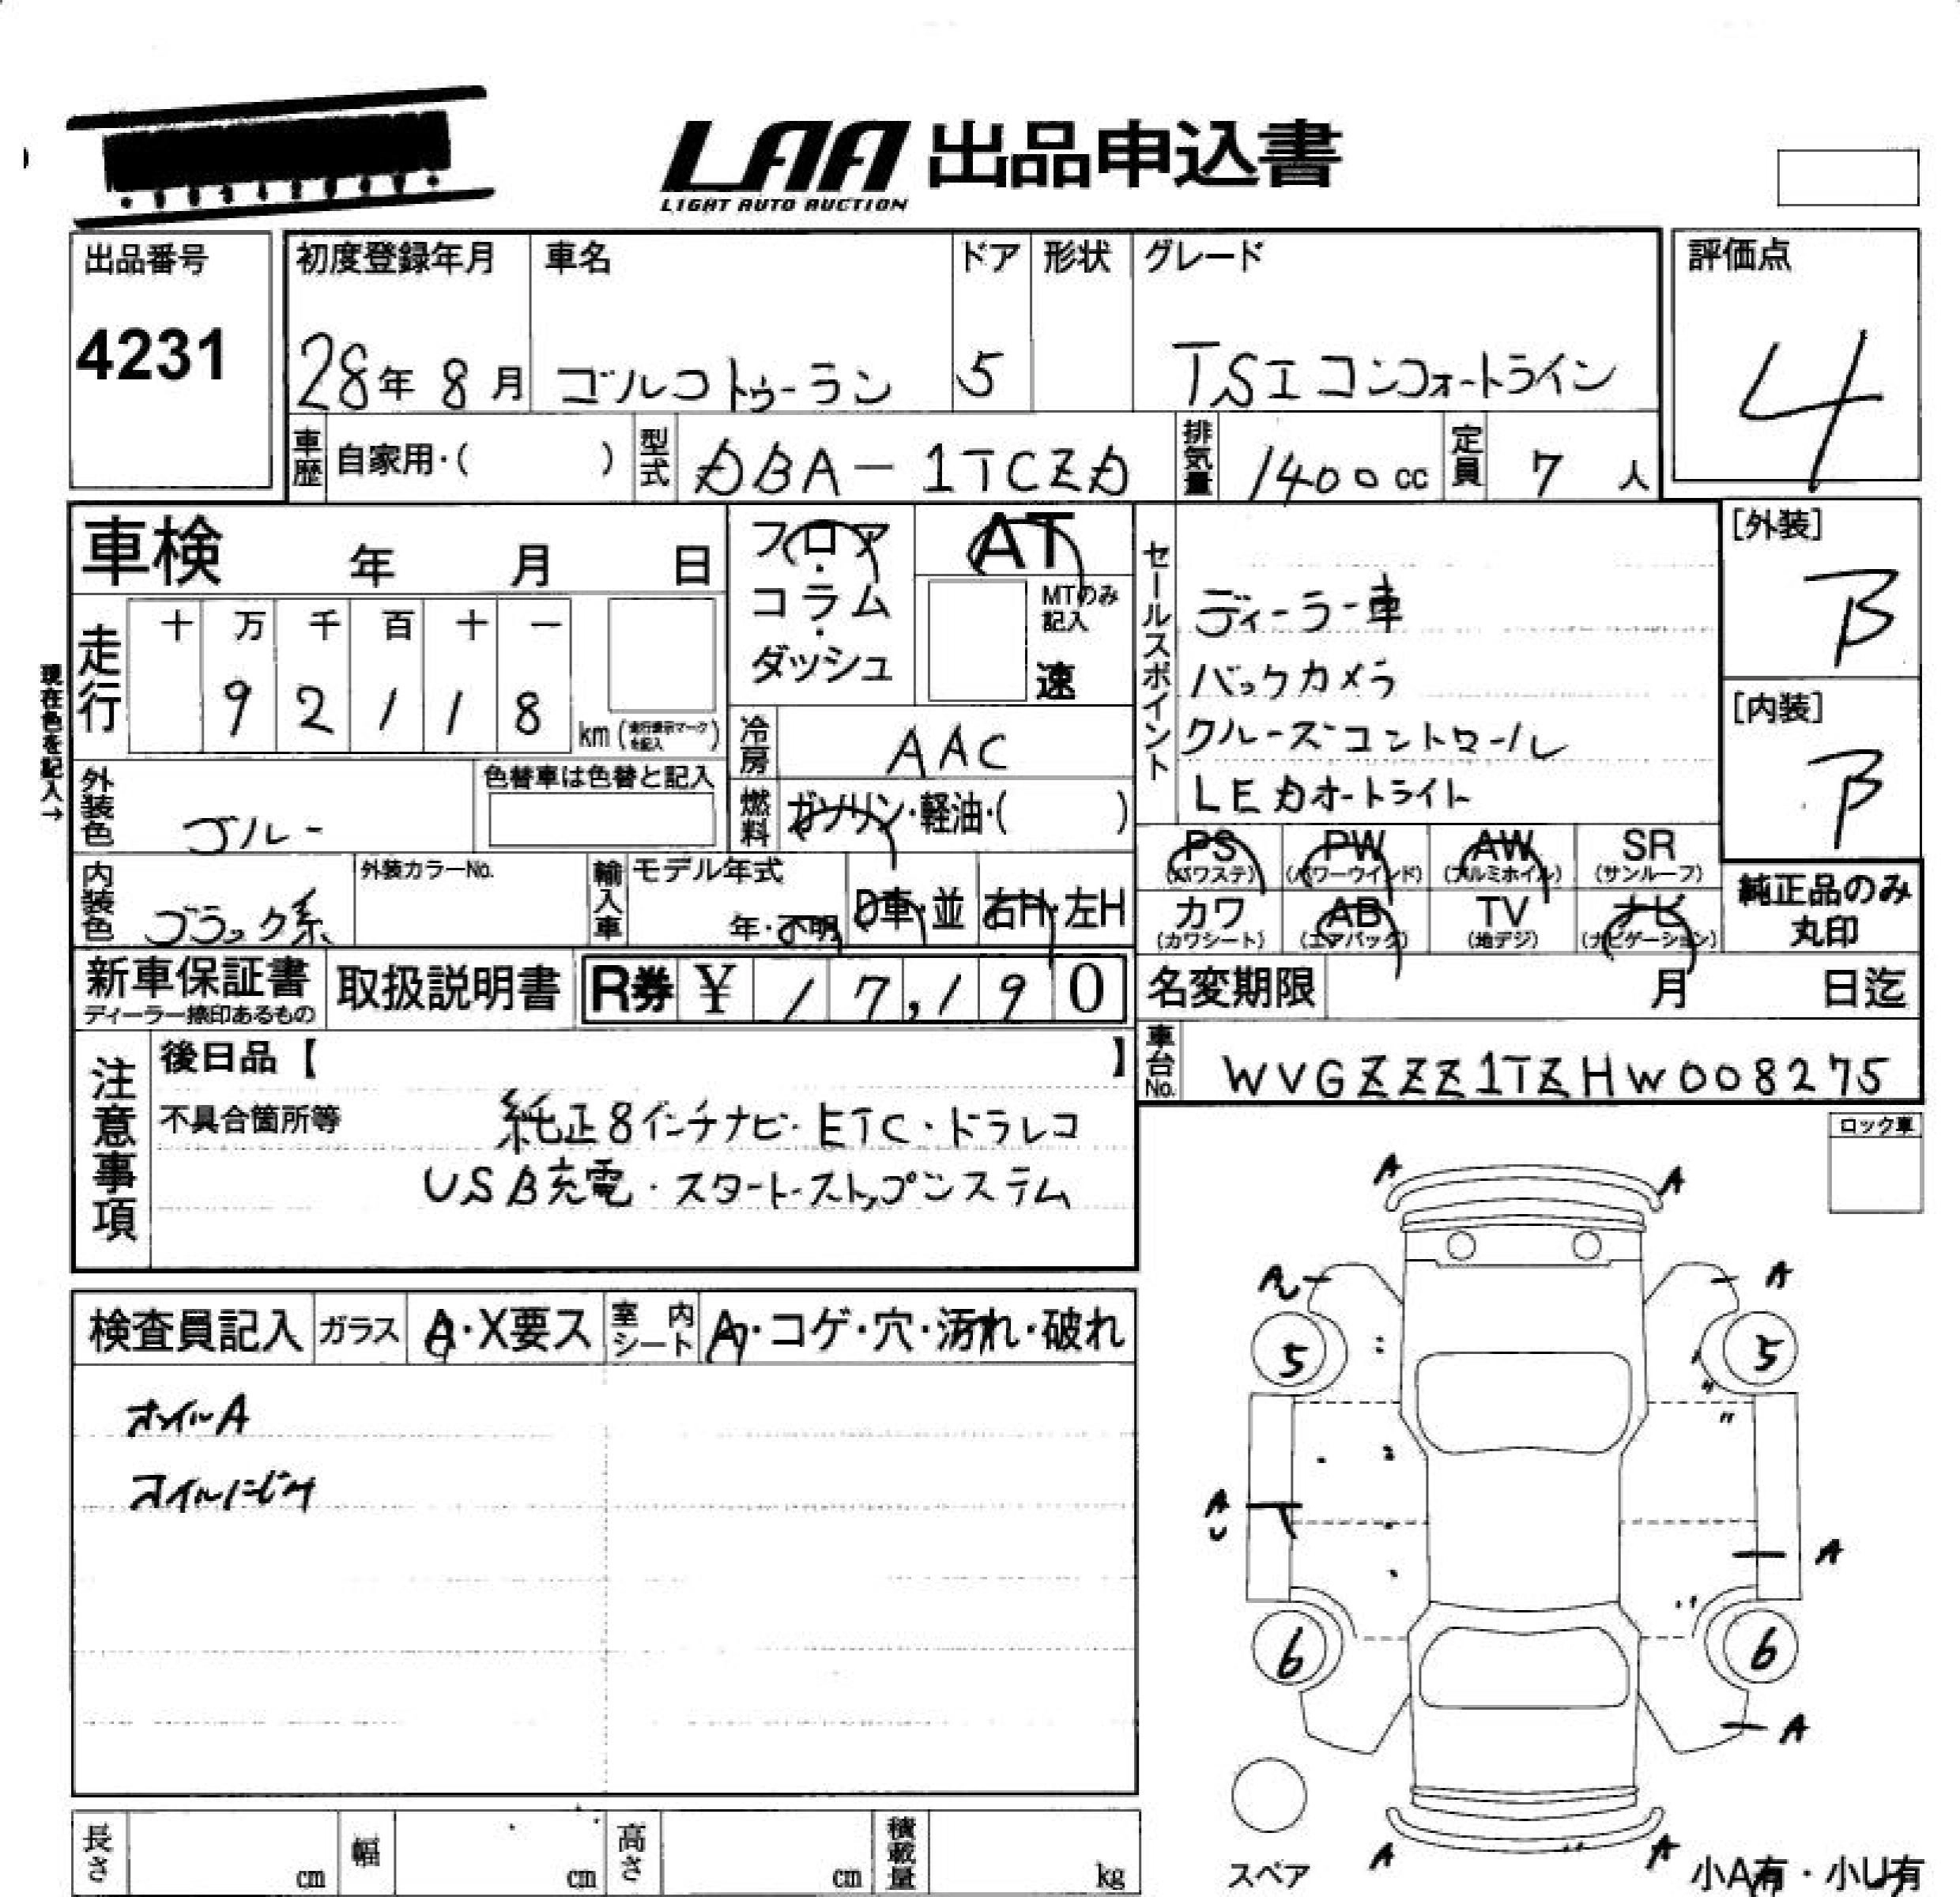 LAA 出品申込書
LIGHT AUTO AUCTION
出品番号
4231
初度登録年月 車名 ドア 形状 グレード
28年 8月 ゴルフトゥーラン 5 TSI コンフォートライン
評価点
4
車歴 自家用・( ) 型式 DBA-1TCZD 排気量 1400cc 定員 7人
車検 年 月 日
フロア・コラム・ダッシュ
AT
MTのみ記入
速
セールスポイント
ディーラー車
バックカメラ
クルーズコントロール
LEDオートライト
[外装]
B
[内装]
B
現在色を記入→
走行 十 万 千 百 十 一
9 2 1 1 8 km (走行表示マークを記入)
冷房 AAC
外装色 ブルー
色替車は色替と記入
燃料 ガソリン・軽油・( )
PS (パワステ) PW (パワーウインド) AW (アルミホイル) SR (サンルーフ)
カワ (カワシート) AB (エアバッグ) TV (地デジ) ナビ (ナビゲーション)
純正品のみ丸印
内装色 ブラック系
外装カラーNo.
輸入車 モデル年式 年・不明 D車・並 右H・左H
新車保証書
ディーラー捺印あるもの
取扱説明書
R券 ¥ 17,190
名変期限 月 日迄
車台No. WVGZZZ1TZHW008275
注意事項
後日品【 】
不具合箇所等
純正8インチナビ・ETC・ドラレコ
USB充電・スタートストップシステム
ロック車
検査員記入 ガラス A・X要ス 室内シート A・コゲ・穴・汚れ・破れ
オイルA
オイルにじみ
A A
A
5 5
A
A
6 6
A
A A
スペア
小A有・小U有
長さ cm 幅 cm 高さ cm 積載量 kg